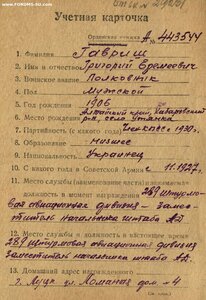 FORUMS-SU.COM
Учетная карточка
Орденская книжка А № 443544
1. Фамилия Гавриш
2. Имя и отчество Григорий Еремеевич
3. Воинское звание Полковник
4. Пол Мужской
5. Год рождения 1906
6. Место рождения Алтайский край, Хабаровский р-н, село Утянка
7. Партийность (с какого года) Член КПСС 1930г.
8. Образование низшее
9. Национальность Украинец
10. С какого года в Советской Армии с 11.1927г.
11. Место службы (наименование части) и занимаемая
должность в момент награждения 289 штурмо-
вая авиационная дивизия – заме-
ститель начальника штаба АД
12. Место службы и должность в настоящее время
289 штурмовая авиационная дивизия
заместитель начальника штаба АД.
13. Домашний адрес награжденного
г. Луцк ул. Ломаная дом № 4